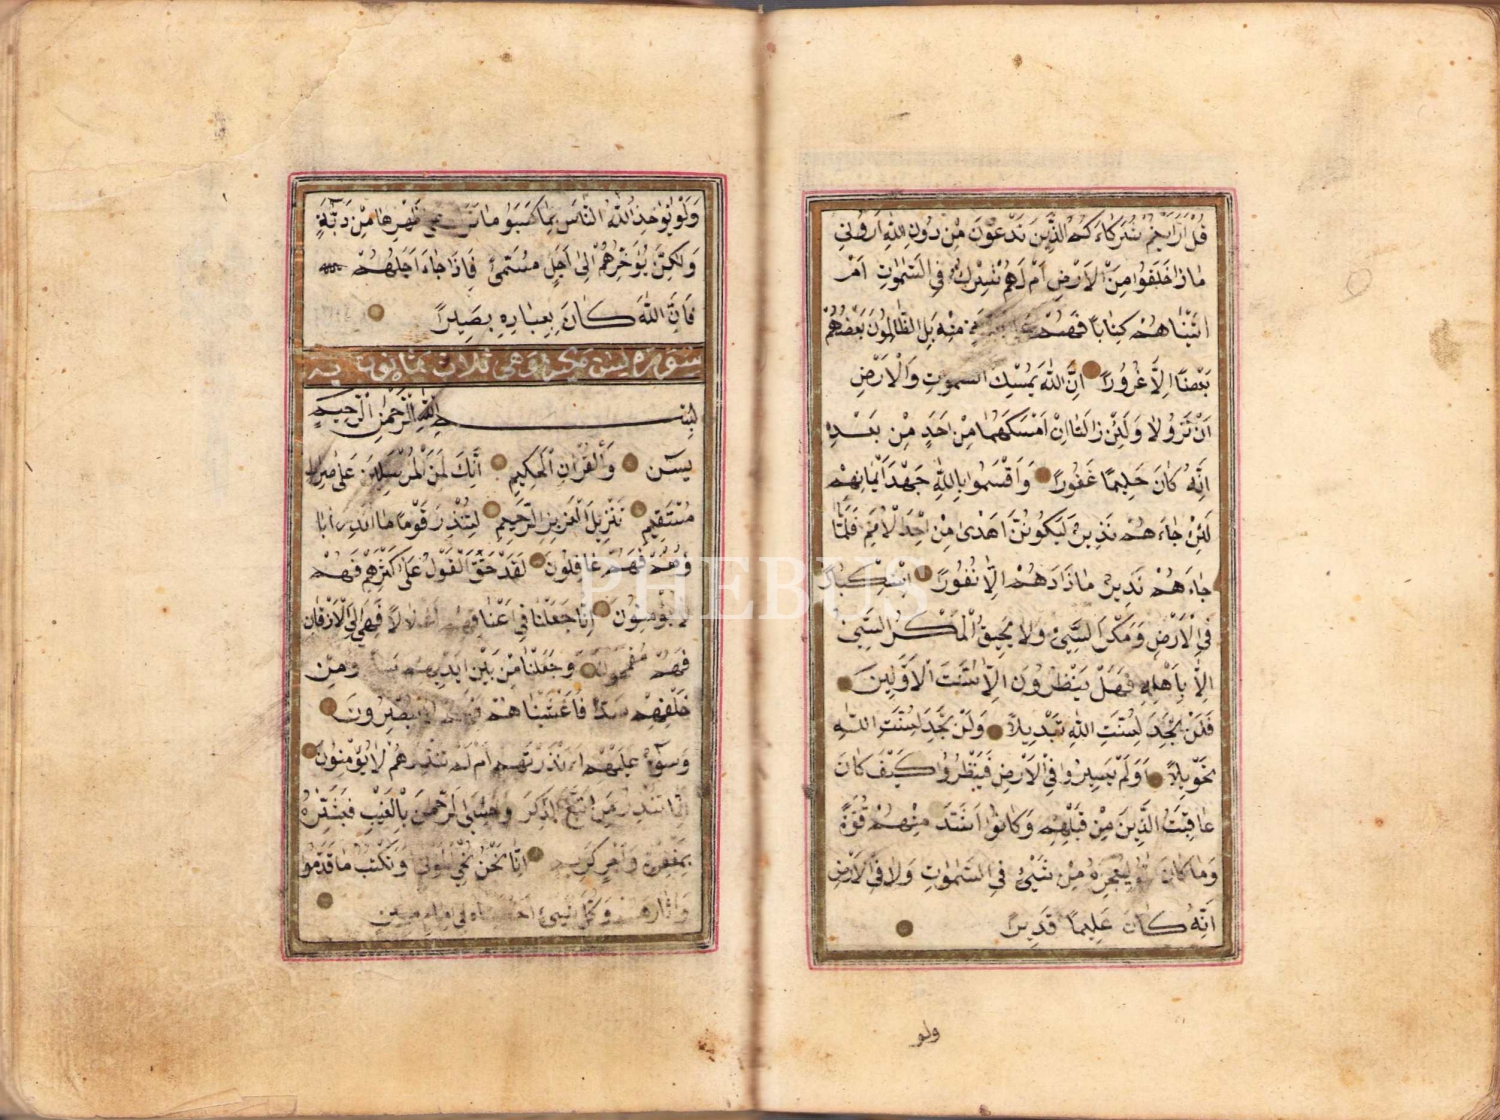 قُلْ اَرَاَيْتُمْ شُرَكَاءَكُمُ الَّذِينَ تَدْعُونَ مِنْ دُونِ اللّٰهِ اَرُونِي
مَاذَا خَلَقُوا مِنَ الْاَرْضِ اَمْ لَهُمْ شِرْكٌ فِي السَّمٰوَاتِ اَمْ
اٰتَيْنَاهُمْ كِتَابًا فَهُمْ عَلٰى مِنْهُ بَلْ الظَّالِمُونَ بَعْضُهُمْ
بَعْضًا اِلَّا غُرُورًا اِنَّ اللّٰهَ يُمْسِكُ السَّمٰوَاتِ وَالْاَرْضَ
اَنْ تَزُولَا وَلَئِنْ زَالَتَا اِنْ اَمْسَكَهُمَا مِنْ اَحَدٍ مِنْ بَعْدِهِ
اِنَّهُ كَانَ حَلِيمًا غَفُورًا وَاَقْسَمُوا بِاللّٰهِ جَهْدَ اَيْمَانِهِمْ
لَئِنْ جَاءَهُمْ نَذِيرٌ لَيَكُونُنَّ اَهْدٰى مِنْ اِحْدَى الْاُمَمِ فَلَمَّا
جَاءَهُمْ نَذِيرٌ مَا زَادَهُمْ اِلَّا نُفُورًا اِسْتِكْبَارًا
فِي الْاَرْضِ وَمَكْرَ السَّيِّئِ وَلَا يَحِيقُ الْمَكْرُ السَّيِّئُ
اِلَّا بِاَهْلِهِ فَهَلْ يَنْظُرُونَ اِلَّا سُنَّتَ الْاَوَّلِينَ
فَلَنْ تَجِدَ لِسُنَّتِ اللّٰهِ تَبْدِيلًا وَلَنْ تَجِدَ لِسُنَّتِ اللّٰهِ
تَحْوِيلًا اَوَلَمْ يَسِيرُوا فِي الْاَرْضِ فَيَنْظُرُوا كَيْفَ كَانَ
عَاقِبَتُ الَّذِينَ مِنْ قَبْلِهِمْ وَكَانُوا اَشَدَّ مِنْهُمْ قُوَّةً
وَمَا كَانَ اللّٰهُ لِيُعْجِزَهُ مِنْ شَيْءٍ فِي السَّمٰوَاتِ وَلَا فِي الْاَرْضِ
اِنَّهُ كَانَ عَلِيمًا قَدِيرًا
ولو
وَلَوْ يُؤَاخِذُ اللّٰهُ النَّاسَ بِمَا كَسَبُوا مَا تَرَكَ عَلٰى ظَهْرِهَا مِنْ دَابَّةٍ
وَلٰكِنْ يُؤَخِّرُهُمْ اِلٰى اَجَلٍ مُسَمًّى فَاِذَا جَاءَ اَجَلُهُمْ
فَاِنَّ اللّٰهَ كَانَ بِعِبَادِهِ بَصِيرًا
سورة يس مكية وهي ثلاث ثمانون اية
بِسْمِ اللّٰهِ الرَّحْمٰنِ الرَّحِيمِ
يٰسٓ وَالْقُرْاٰنِ الْحَكِيمِ اِنَّكَ لَمِنَ الْمُرْسَلِينَ عَلٰى صِرَاطٍ
مُسْتَقِيمٍ تَنْزِيلَ الْعَزِيزِ الرَّحِيمِ لِتُنْذِرَ قَوْمًا مَا اُنْذِرَ اٰبَا
ؤُهُمْ فَهُمْ غَافِلُونَ لَقَدْ حَقَّ الْقَوْلُ عَلٰى اَكْثَرِهِمْ فَهُمْ
لَا يُؤْمِنُونَ اِنَّا جَعَلْنَا فِي اَعْنَاقِهِمْ اَغْلَالًا فَهِيَ اِلَى الْاَذْقَانِ
فَهُمْ مُقْمَحُونَ وَجَعَلْنَا مِنْ بَيْنِ اَيْدِيهِمْ سَدًّا وَمِنْ
خَلْفِهِمْ سَدًّا فَاَغْشَيْنَاهُمْ فَهُمْ لَا يُبْصِرُونَ
وَسَوَاءٌ عَلَيْهِمْ ءَاَنْذَرْتَهُمْ اَمْ لَمْ تُنْذِرْهُمْ لَا يُؤْمِنُونَ
اِنَّمَا تُنْذِرُ مَنِ اتَّبَعَ الذِّكْرَ وَخَشِيَ الرَّحْمٰنَ بِالْغَيْبِ فَبَشِّرْهُ
بِمَغْفِرَةٍ وَاَجْرٍ كَرِيمٍ اِنَّا نَحْنُ نُحْيِي الْمَوْتٰى وَنَكْتُبُ مَا قَدَّمُوا
وَاٰثَارَهُمْ وَكُلَّ شَيْءٍ اَحْصَيْنَاهُ فِي اِمَامٍ مُبِينٍ
PHEBUS